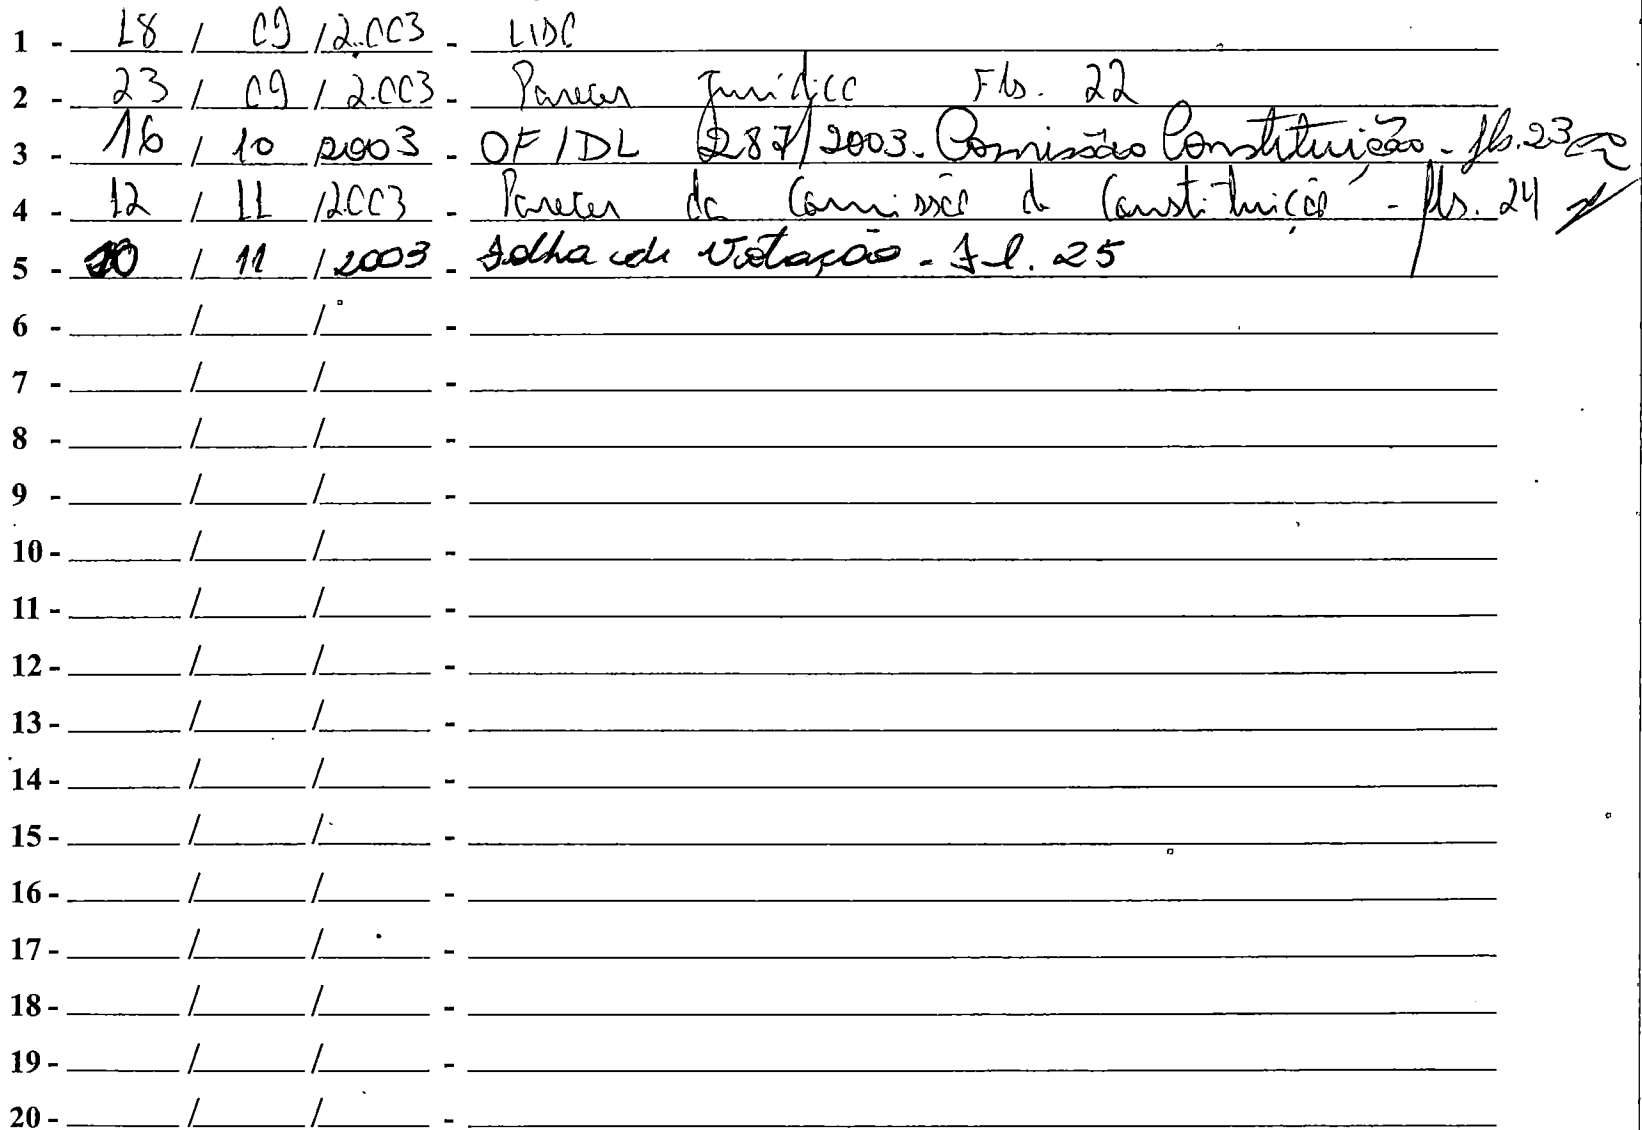 1 - 18 / 09 / 2.003 - LIDO
2 - 23 / 09 / 2.003 - Parecer Jurídico Fls. 22
3 - 16 / 10 2003 - OF/DL 287/2003. Comissão Constituição - fls.23
4 - 12 / 11 / 2.003 - Parecer da Comissão de Constituição - fls. 24
5 - / 11 / 2003 - Folha de Votação - Fl. 25
6 - / / -
7 - / / -
8 - / / -
9 - / / -
10 - / / -
11 - / / -
12 - / / -
13 - / / -
14 - / / -
15 - / / -
16 - / / -
17 - / / -
18 - / / -
19 - / / -
20 - / / -